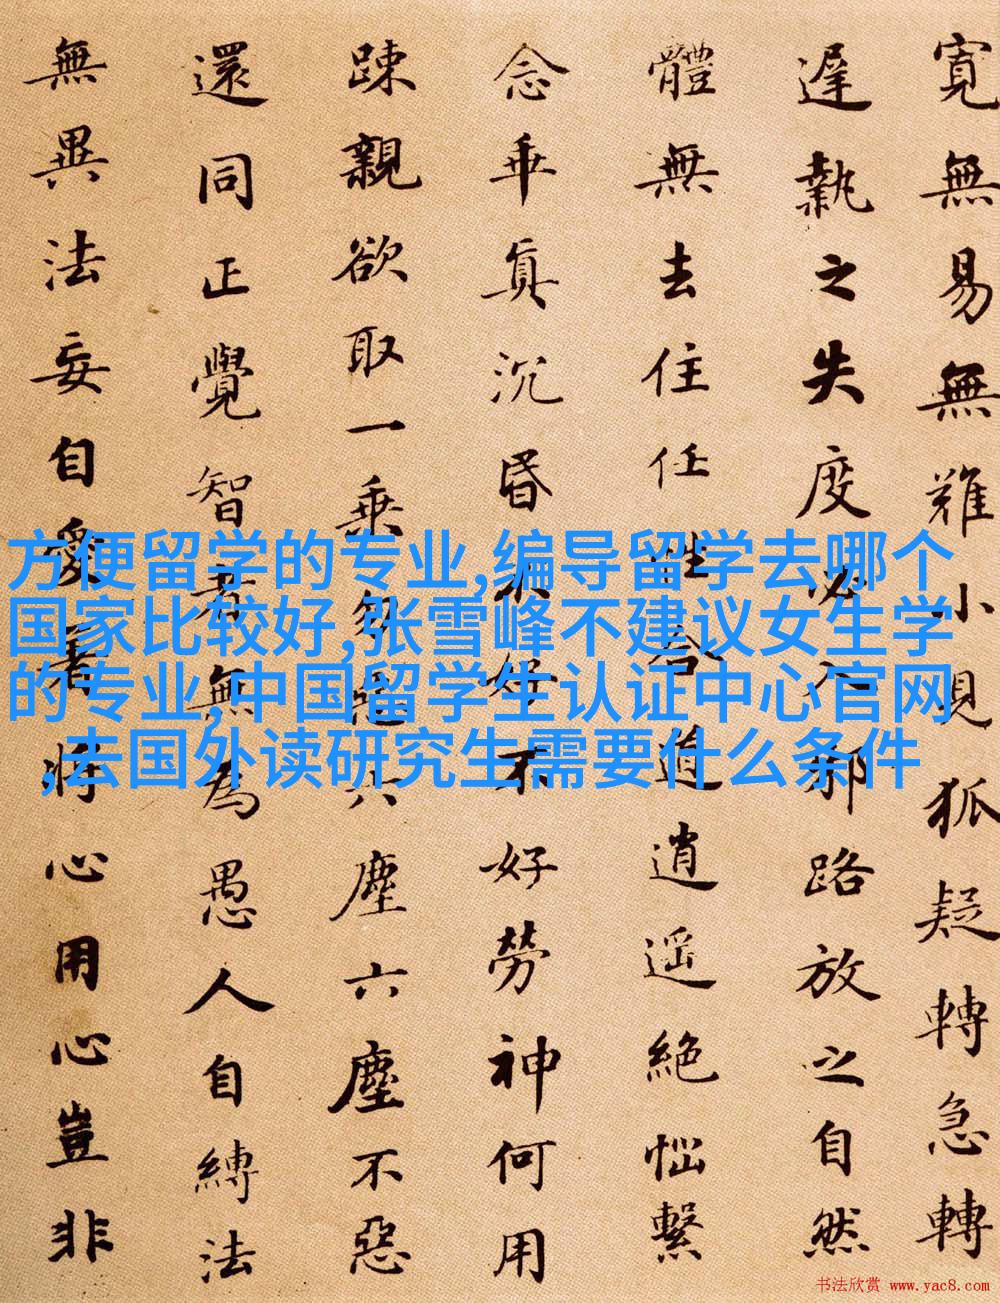 寬無易無難小見狐疑轉急轉
遲執之失度必入邪路放之自然
體無去住任性合道逍遥絕惱繫
念乖真沉昏不好不好勞神何用
踈親欲取一乘勿惡六塵六塵不惡
還同正覺智者無為愚人自縛法
無異法妄自愛著將心用心豈非
方便留学的专业,编导留学去哪个
国家比较好,张雪峰不建议女生学
的专业,中国留学生认证中心官网
,去国外读研究生需要什么条件
书法欣赏 www.yac8.com